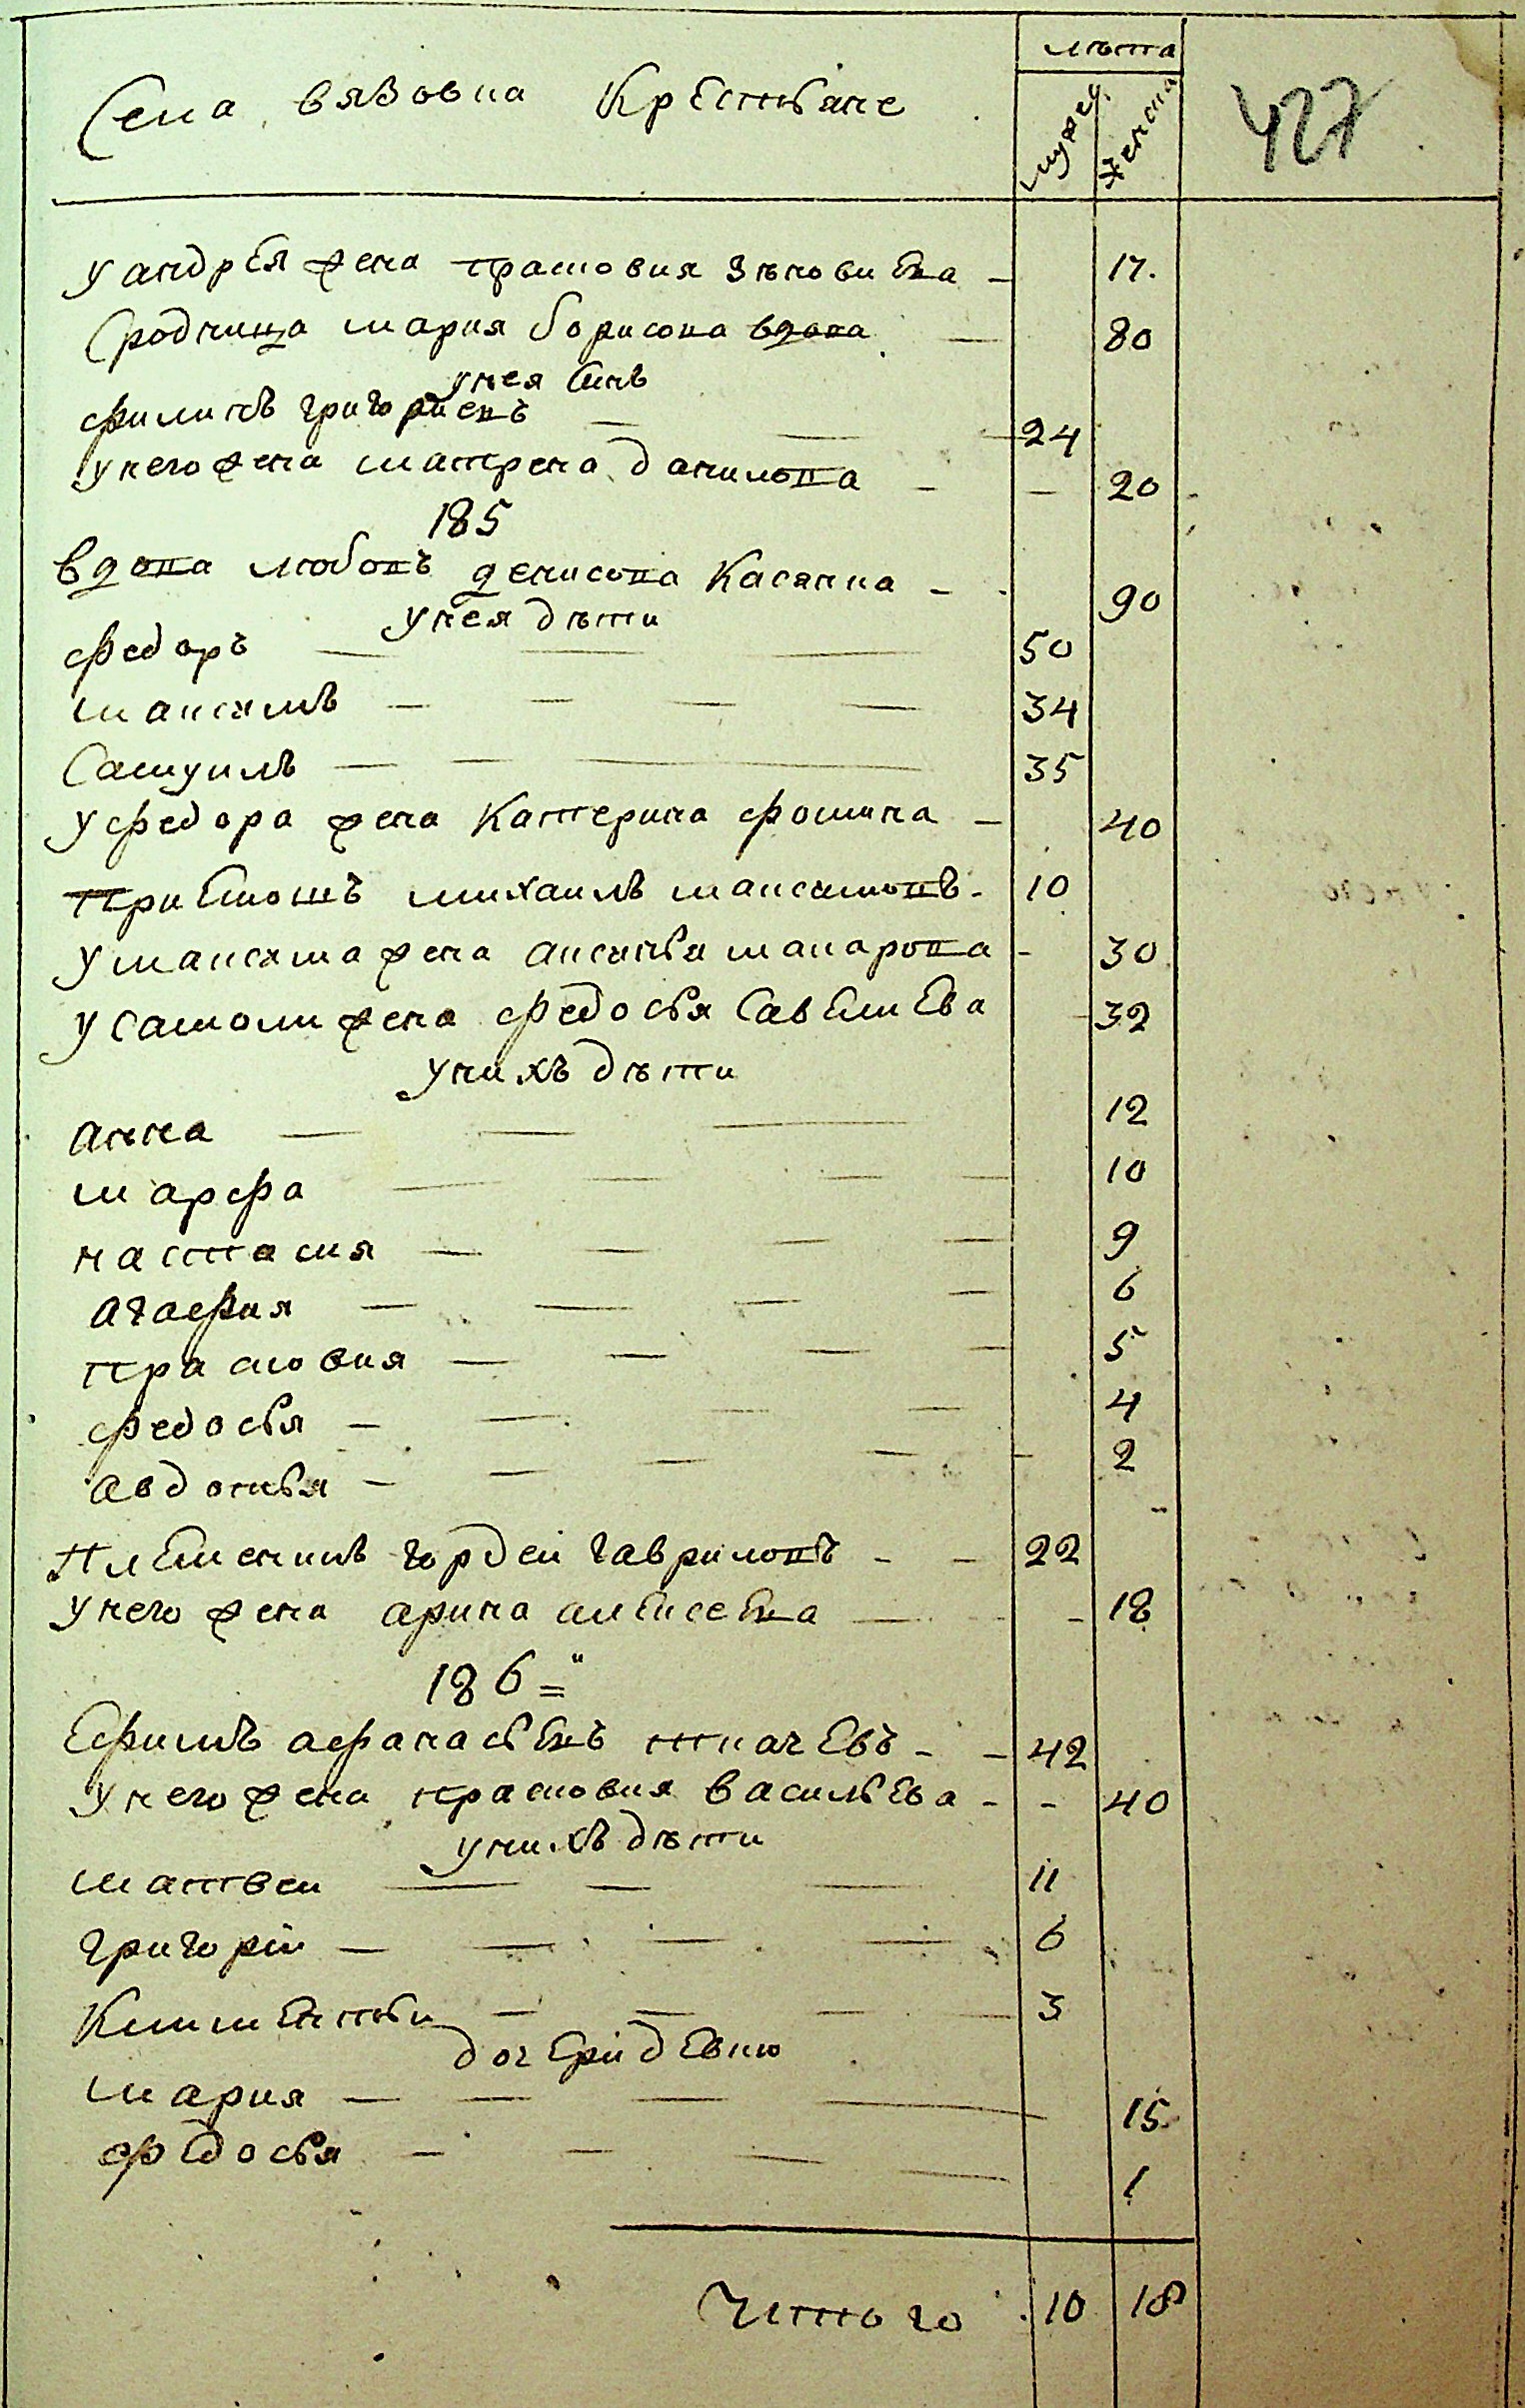 лѣта
Села вязовка Крестьяне
мужес. женска
427
У андрея жена прасковия зѣновиева 17.
Сродница мария борисова вдова 80
у нея сынъ
филипъ григориевъ 24
у него жена матрена данилова 20
185
вдова любовь денисова Касякина 90
у нея дѣти
федоръ 50
максимъ 34
Самуилъ 35
У федора жена Катерина фомина 40
приемышъ михаилъ максимовъ 10
У максима жена аксинья макарова 30
У самоили жена федосья Савелиева 32
у нихъ дѣти
анна 12
марфа 10
настасия 9
агафия 6
прасковия 5
федосья 4
авдотья 2
племенникъ гордеи гавриловъ 22
У него жена арина алексеева 18
186
Ефимъ афанасьевъ ткачевъ 42
У него жена прасковия васильева 40
у нихъ дѣти
матвеи 11
григорiи 6
Климентьи 3
дочери девки
мария 15
федосья 1
Итого 10 18